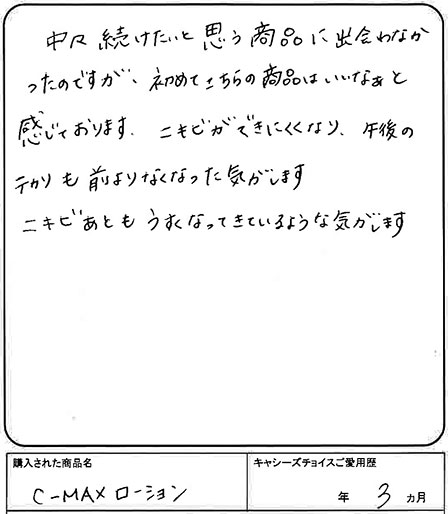 中々続けたいと思う商品に出会わなか
ったのですが、初めてこちらの商品はいいなぁと
感じております。ニキビができにくくなり、午後の
テカリも前よりなくなった気がします
ニキビあともうすくなってきているような気がします
購入された商品名
キャシーズチョイスご愛用歴
C-MAXローション
年 3 カ月